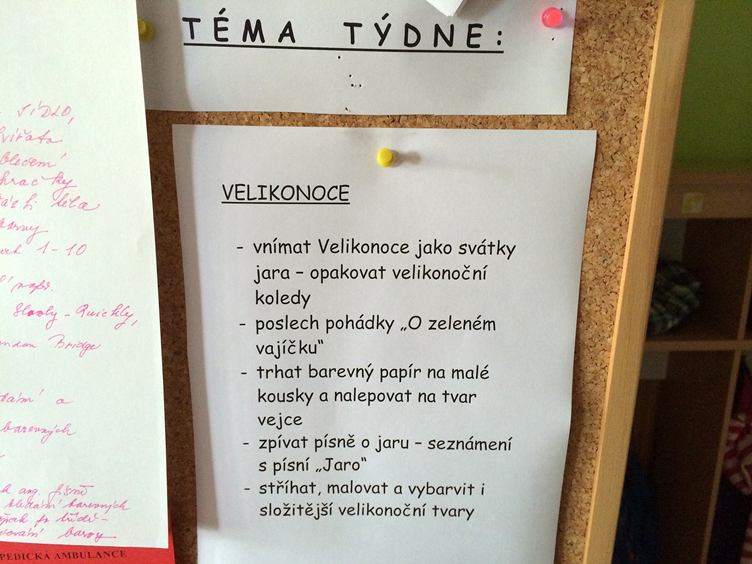 TÉMA TÝDNE:
VELIKONOCE
- vnímat Velikonoce jako svátky
jara – opakovat velikonoční
koledy
- poslech pohádky „O zeleném
vajíčku“
- trhat barevný papír na malé
kousky a nalepovat na tvar
vejce
- zpívat písně o jaru – seznámení
s písní „Jaro“
- stříhat, malovat a vybarvit i
složitější velikonoční tvary
JÍDLO,
oblečení
hračky
léta
barvy
1-10
Slowly - Quickly,
Bridge
a
barevných
barevných
barvy
PEDICKÁ AMBULANCE